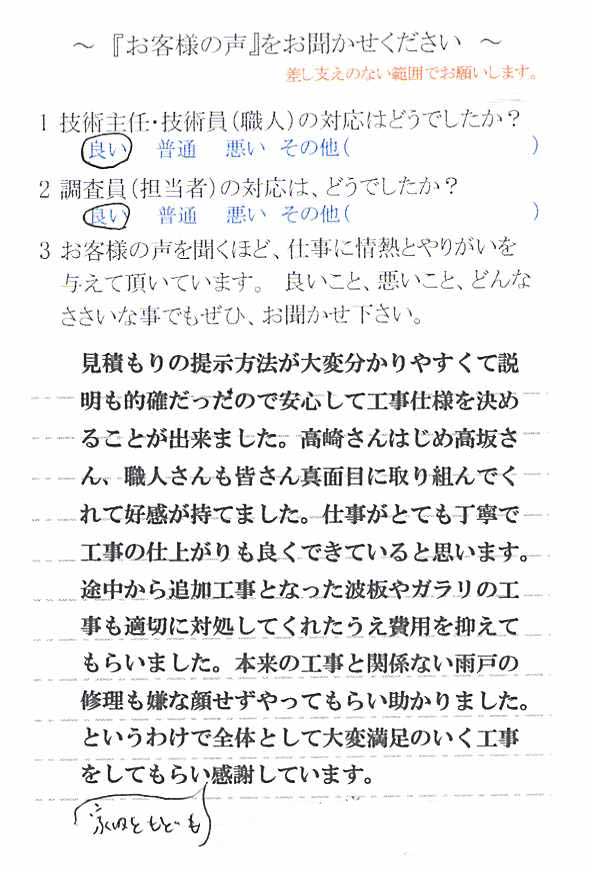 ～ 『お客様の声』をお聞かせください ～
差し支えのない範囲でお願いします。
1 技術主任・技術員(職人)の対応はどうでしたか？
良い 普通 悪い その他( )
2 調査員(担当者)の対応は、どうでしたか？
良い 普通 悪い その他( )
3 お客様の声を聞くほど、仕事に情熱とやりがいを
与えて頂いています。 良いこと、悪いこと、どんな
ささいな事でもぜひ、お聞かせ下さい。
見積もりの提示方法が大変分かりやすくて説
明も的確だったので安心して工事仕様を決め
ることが出来ました。高崎さんはじめ高坂さ
ん、職人さんも皆さん真面目に取り組んでく
れて好感が持てました。仕事がとても丁寧で
工事の仕上がりも良くできていると思います。
途中から追加工事となった波板やガラリの工
事も適切に対処してくれたうえ費用を抑えて
もらいました。本来の工事と関係ない雨戸の
修理も嫌な顔せずやってもらい助かりました。
というわけで全体として大変満足のいく工事
をしてもらい感謝しています。
ともども